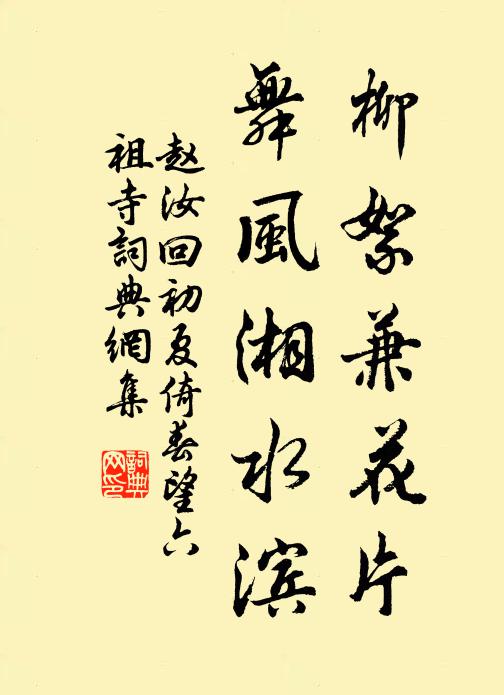 柳絮兼花片
舞風湘水滨
赵汝回初夏倚春望六
祖寺詞典網集
詞典
网印